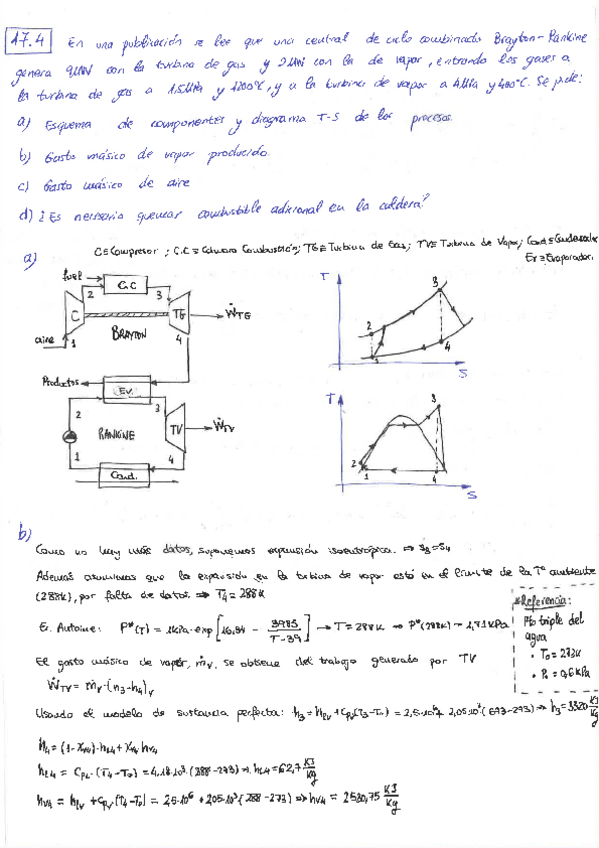 17.4 En una publicación se lee que una central de ciclo combinado Brayton-Rankine
genera 9MW con la turbina de gas y 2MW con la de vapor, entrando los gases a
la turbina de gas a 1,5MPa y 1200°C, y a la turbina de vapor a 4MPa y 400°C. Se pide:
a) Esquema de componentes y diagrama T-S de los procesos.
b) Gasto másico de vapor producido.
c) Gasto másico de aire
d) ¿Es necesario quemar combustible adicional en la caldera?
a)
C≡Compresor ; C.C≡Cámara Combustión; TG≡Turbina de Gas; TV≡Turbina de Vapor; Cond≡Condensador
Ev≡Evaporador.
fuel
C.C
2
3
C
TG
ẆTG
BRAYTON
aire
1
4
Productos
Ev.
2
3
TV
ẆTV
RANKINE
1
4
Cond.
T
3
2
4
1
S
T
3
2
1
4
S
b)
Como no hay más datos, suponemos expansión isoentrópica. ⇒ s3=s4
Además asumimos que la expansión en la turbina de vapor está en el límite de la Tª ambiente
(288K), por falta de datos ⇒ T4=288K
Ec. Antoine: P*(T) = 1kPa·exp[16,54 - 3985/(T-39)] → T=288K ⇒ P*(288K)=1,71kPa
*Referencia:
Pto triple del
agua
• T0=273K
• P0=0,6kPa
El gasto másico de vapor, ṁv, se obtiene del trabajo generado por TV
ẆTV = ṁv·(h3-h4)v
Usando el modelo de sustancia perfecta: h3=hLV+CPV(T3-T0) = 2,5·10⁶+2,05·10³(673-273) ⇒ h3=3320 KJ/Kg
h4=(1-XV4)·hL4+XV4·hV4
hL4 = CPL·(T4-T0)=4,18·10³·(288-273) ⇒ hL4=62,7 KJ/Kg
hV4 = hLV+CPV(T4-T0)=2,5·10⁶+2,05·10³(288-273) ⇒ hV4 = 2530,75 KJ/Kg